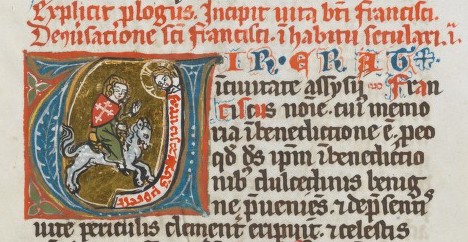 Explicit plogus. Incipit uita bti Francisci.
sci Francisci. i habitu seculari. i.
IR. ERAT
iciuitate assysii Fran
ciscus noie. cui memo
ria i benedictione e. peo
qd ds ipm i benedictio
nib dulcedinis benig
ne pueniens. & depsentis
uite periculis clement eripuit. & celestis